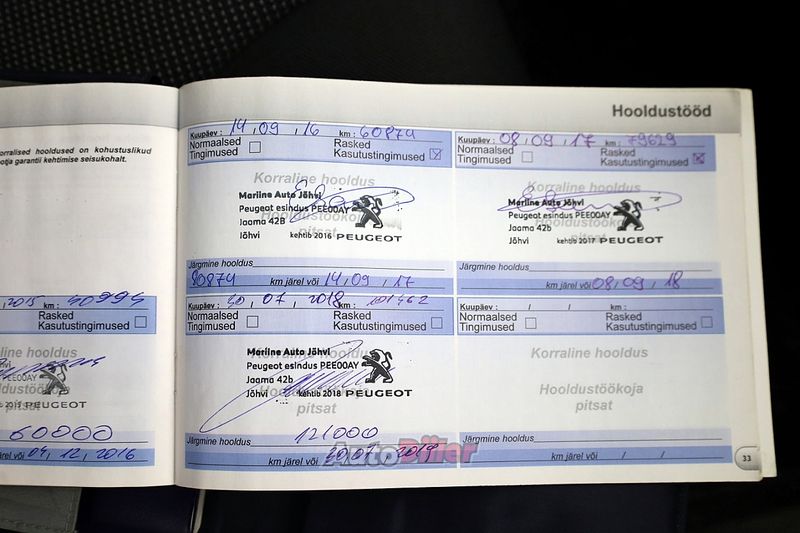 Hooldustööd
orralised hooldused on kohustuslikud
otja garantii kehtimise seisukohalt.
2015 km: 40994
Rasked
Kasutustingimused
raline hooldus
PEE00AY
Hooldustöökoja
pitsat
PEUGEOT
60000
järel või 04, 12, 2016
Kuupäev: 14, 09, 16 km: 60874
Normaalsed Tingimused
Rasked Kasutustingimused
Korraline hooldus
Mariine Auto Jõhvi
Peugeot esindus PEE00AY
Jaama 42B
Jõhvi kehtib 2016 PEUGEOT
Hooldustöökoja
pitsat
Järgmine hooldus
80874 km järel või 14, 09, 17
Kuupäev: 08, 09, 17 km: 79629
Normaalsed Tingimused
Rasked Kasutustingimused
Korraline hooldus
Mariine Auto Jõhvi
Peugeot esindus PEE00AY
Jaama 42b
Jõhvi kehtib 2017 PEUGEOT
Hooldustöökoja
pitsat
Järgmine hooldus
km järel või 08, 09, 18
Kuupäev: 20, 07, 2018 km: 101462
Normaalsed Tingimused
Rasked Kasutustingimused
Korraline hooldus
Mariine Auto Jõhvi
Peugeot esindus PEE00AY
Jaama 42b
Jõhvi kehtib 2018 PEUGEOT
Hooldustöökoja
pitsat
Järgmine hooldus 121000
km järel või 20, 07, 2019
AutoDiiler
Kuupäev: / / km:
Normaalsed Tingimused
Rasked Kasutustingimused
Korraline hooldus
Hooldustöökoja
pitsat
Järgmine hooldus
km järel või / /
33